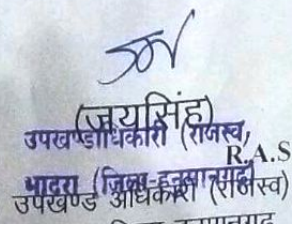 (जयसिंह)
उपखण्डाधिकारी (राजस्व,
R.A.S
भादरा (जिला-हनुमानगढ़)
उपखण्ड अधिकारी (राजस्व)